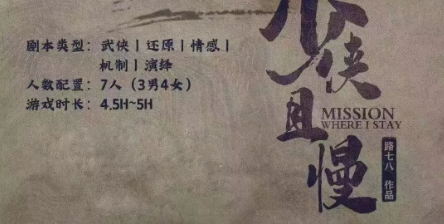 剧本类型：武侠丨还原丨情感丨
机制丨演绎
人数配置：7人（3男4女）
游戏时长：4.5H~5H
少侠且慢
MISSION
WHERE I STAY
路七八 作品